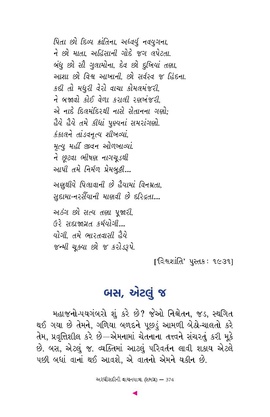 પિતા છો દિવ્ય ક્રાંતિના, અધ્વર્યુ નવયુગના,
ને છો માતા, અહિંસાની ગોદે જગ લપેટતા.
બંધુ છો સૌ ગુલામોના, દેવ છો દુખિયાં તણા,
આશા છો વિશ્વ આખાની, છો સર્વસ્વ જ હિંદના.
કદી તો મધુરી વેરો વાચા કોમલમંજરી,
ને બજાવો કોઈ વેળા કરાલી રણખંજરી.
એ નાદે દિલમંદિરથી નાસે સેતાનના ગણો;
હૈયે હૈયે તમે કીધાં પુણ્યનાં સમરાંગણો.
કંકાલને તાંડવનૃત્ય શીખવ્યાં,
મૃત્યુ મહીં જીવન ઓળખાવ્યાં
ને છૂટવા ભીષણ નાગચૂડથી
આપી તમે નિર્મળ પ્રેમબુટ્ટી...
અણુથીયે પિલાવાની છે હૈયામાં વિનમ્રતા,
સુદામા-નરસૈંયાની માણવી છે દરિદ્રતા...
અઠંગ છો સત્ય તણા પૂજારી,
ઉરે સદાજાગ્રત કર્મયોગી...
યોગી, તમે ભારતવાસી હૈયે
જન્મી ચૂક્યા છો જ કરોડરૂપે.
[‘વિશ્વશાંતિ’ પુસ્તક: ૧૯૩૧]
બસ, એટલું જ
મહાજનો-પયગંબરો શું કરે છે? જેઓ નિશ્ચેતન, જડ, સ્થગિત
થઈ ગયા છે તેમને, ગળિયા બળદને પૂછડું આમળી બેઠો-ચાલતો કરે
તેમ, પ્રવૃત્તિશીલ કરે છે—એમનામાં ચેતનાના તત્ત્વને સંચરતું કરી મૂકે
છે. બસ, એટલું જ. વ્યક્તિમાં આટલું પરિવર્તન લાવી શકાય એટલે
પછી બધાં વાનાં થઈ આવશે, એ વાતનો એમને યકીન છે.
અરધી સદીની વાચનયાત્રા